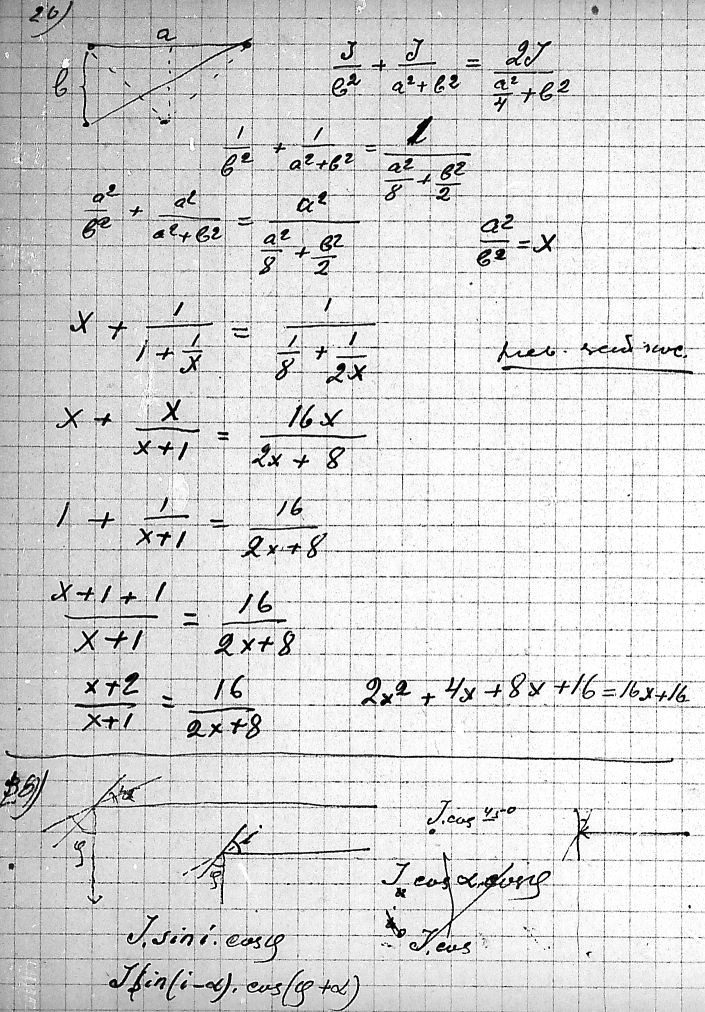 26)
a
b
J/b² + J/(a²+b²) = 2J/(a²/4 + b²)
1/b² + 1/(a²+b²) = 1/(a²/8 + b²/2)
a²/b² + a²/(a²+b²) = a²/(a²/8 + b²/2)
a²/b² = x
x + 1/(1 + 1/x) = 1/(1/8 + 1/2x)
x + x/(x+1) = 16x/(2x + 8)
1 + 1/(x+1) = 16/(2x+8)
(x+1+1)/(x+1) = 16/(2x+8)
(x+2)/(x+1) = 16/(2x+8)
2x² + 4x + 8x + 16 = 16x + 16
α
φ
i
φ
J.cos 45°
J cos α cos φ
J.cos
J.sin i · cos φ
J sin(i-α) · cos(φ+α)